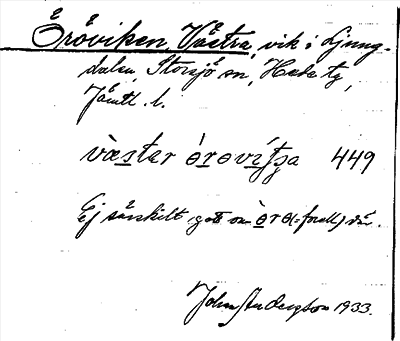 Öröviken, Västra, vik i Ljung-
dalen, Storsjö sn, Hede tg,
Jämtl. l.
vàstar ö̀rovíʃʒa 449
Ej särskilt gott om öro(=forell) där.
John Anderson 1933.